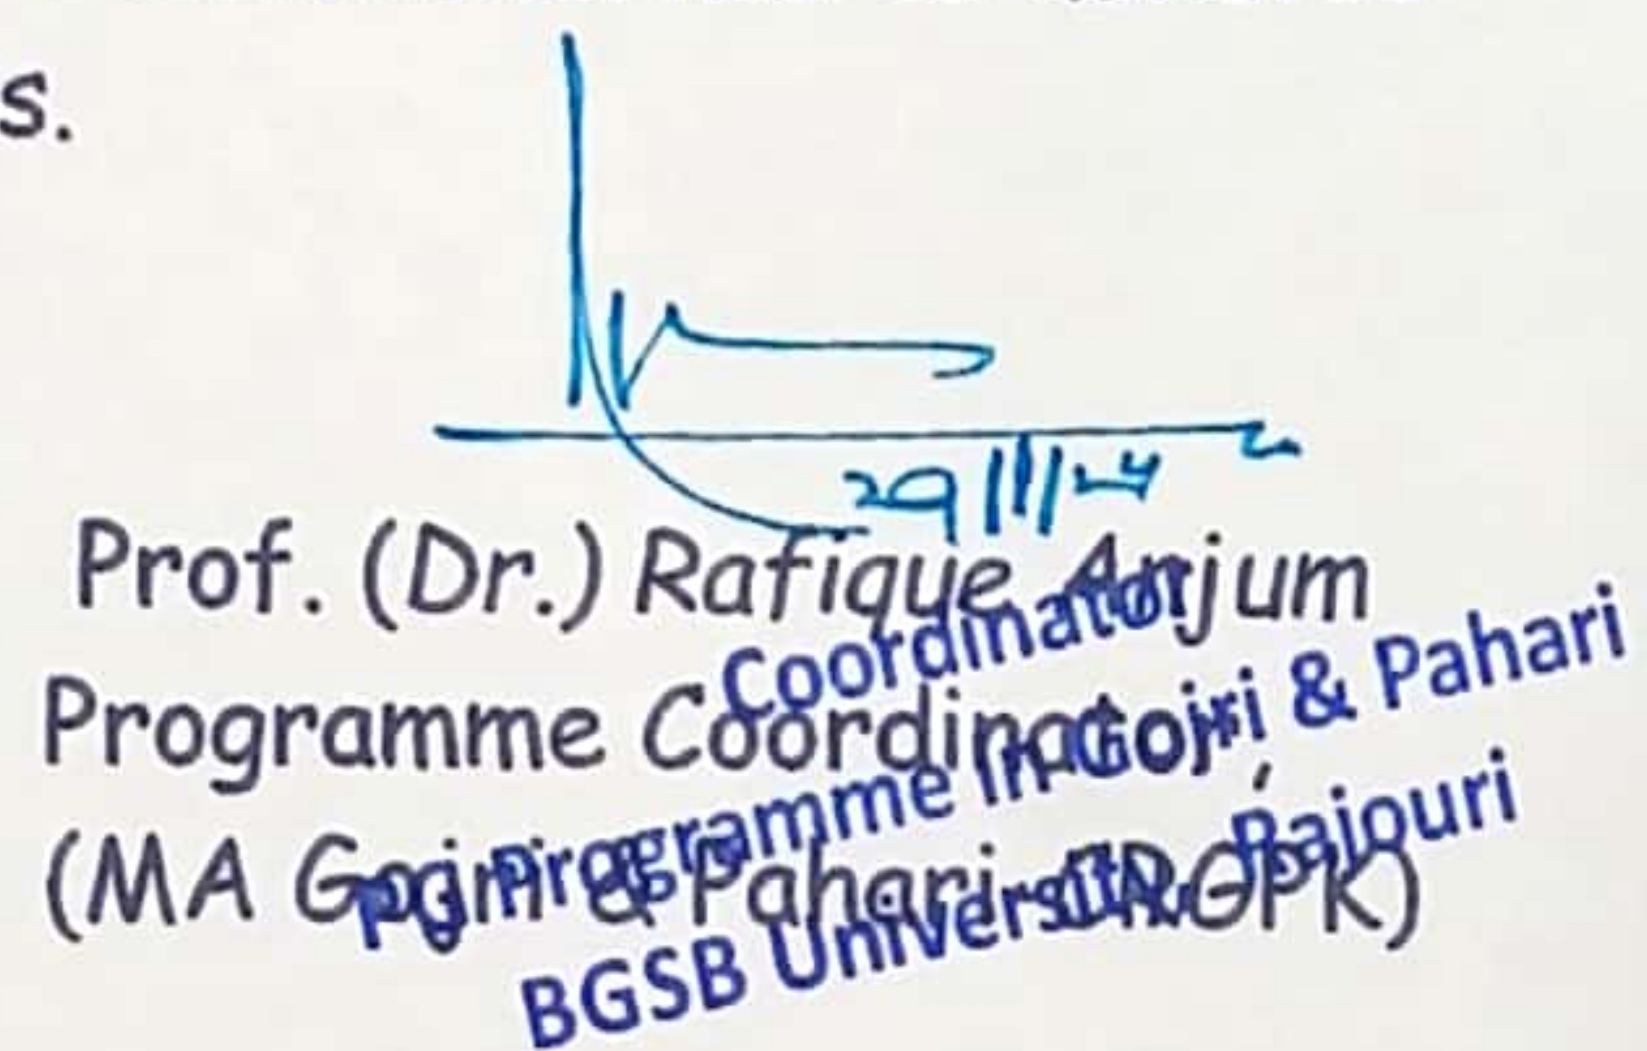 s.
29/11/24
Prof. (Dr.) Rafique Anjum
Programme Coordinator
(MA Gojri & Pahari, CRGPK)
Coordinator
PG Programme In Gojri & Pahari
BGSB University, Rajouri